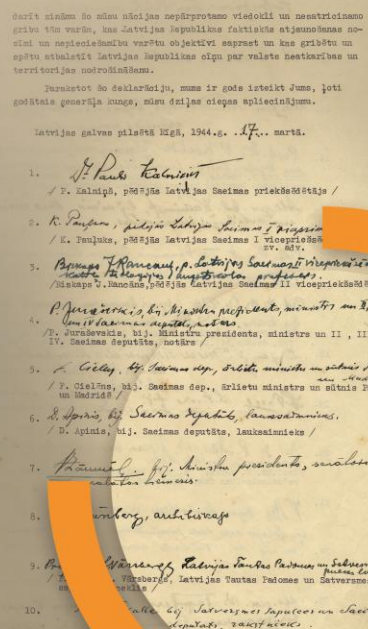 darīt zināmu šo mūsu nācijas nepārprotamo viedokli un nesatricināmo
gribu tām varām, kas Latvijas Republikas faktiskās atjaunošanas no-
zīmi un nepieciešamību varētu objektīvi saprast un kas gribētu un
spētu atbalstīt Latvijas Republikas cīņu par valsts neatkarības un
territorijas nodrošināšanu.
Parakstot šo deklarāciju, mums ir gods izteikt Jums, ļoti
godātais ģenerāļa kungs, mūsu dziļas cieņas apliecinājumu.
Latvijas galvas pilsētā Rīgā, 1944.g. .17... martā.
1. Dr. Pauls Kalniņš
/ P. Kalniņš, pēdējās Latvijas Saeimas priekšsēdētājs /
2. K. Pauļuks, pēdējās Latvijas Saeimas I
/ K. Pauļuks, pēdējās Latvijas Saeimas I vicepriekšsē
zv. adv.
3. Bīskaps J. Rancans, p. Latvijas Saeimas II vicepriekšsē
profesors.
/Bīskaps J.Rancāns,pēdējās Latvijas Saeimas II vicepriekšsēd
4. P. Juraševskis, bij. Ministru prezidents, ministrs un II,
Saeimas deputāts, notārs
/P. Juraševskis, bij. Ministru prezidents, ministrs un II , III
IV. Saeimas deputāts, notārs /
5. F. Cielēns, bij. Saeimas dep., ārlietu ministrs un sūtnis
un
/ F. Cielēns, bij. Saeimas dep., ārlietu ministrs un sūtnis P
un Madridē /
6. D. Apinis, bij. Saeimas deputāts, lauksaimnieks.
/ D. Apinis, bij. Saeimas deputāts, lauksaimnieks /
7. bij. Ministru prezidents,
8. archibīskaps
9. Vārsbergs, Latvijas Tautas Padomes un Satversmes
Vārsbergs, Latvijas Tautas Padomes un Satversmes
10. bij Satversmes Sapulces un
deputāts,